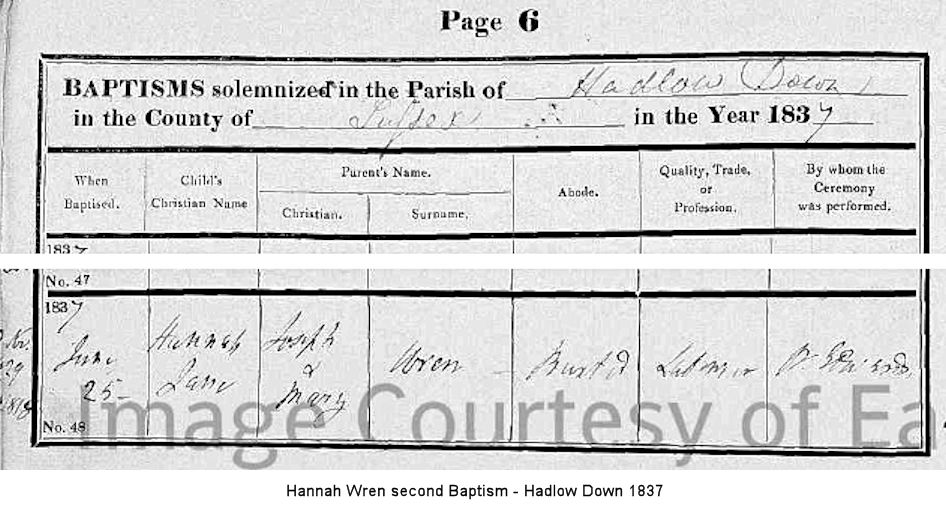 Page 6
BAPTISMS solemnized in the Parish of Hadlow Down
in the County of Sussex in the Year 1837
When Baptised.
Child's Christian Name
Parent's Name.
Christian.
Surname.
Abode.
Quality, Trade, or Profession.
By whom the Ceremony was performed.
1837
No. 47
1837
June
25
Hannah
Jane
Joseph
&
Mary
Wren
Buxted
Labourer
No. 48
Image Courtesy of Ea
Hannah Wren second Baptism - Hadlow Down 1837